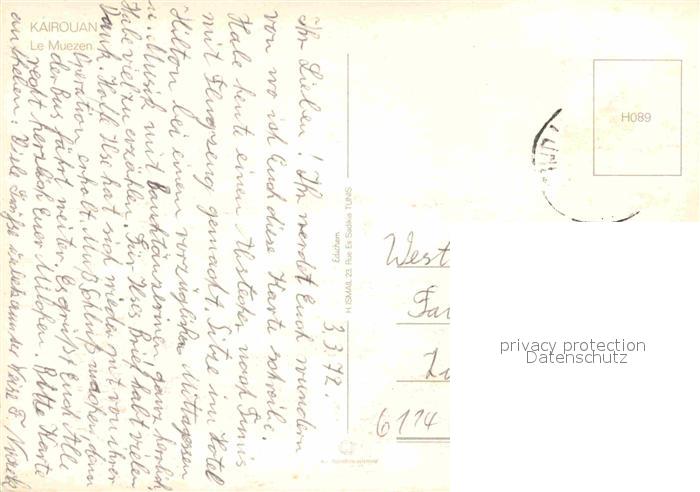 KAIROUAN
Le Muezen
3.3.72.
Ihr Lieben! Ihr werdet Euch wundern
von wo ich Euch diese Karte schreibe.
Habe heute einen Abstecher nach Tunis
mit Flugzeug gemacht. Sitze im Hotel
Hilton bei einem vorzüglichen Mittagessen
u. Musik mit Bauchtänzerinnen ganz herrlich
Habe viel zu erzählen. Für Ilses Brief habt vielen
Dank. Hoffe Ilse hat sich wieder gut von ihrer
Operation erholt. Muß Schluß machen denn
der Bus fährt weiter. Es grüßt Euch Alle
recht herzlich Euer Milchen. Bitte Karte
aufheben! Viele Grüße
Edichem
H. ISMAIL 23, Rue Es Sadikia TUNIS
H089
West
Fa
6114
privacy protection
Datenschutz